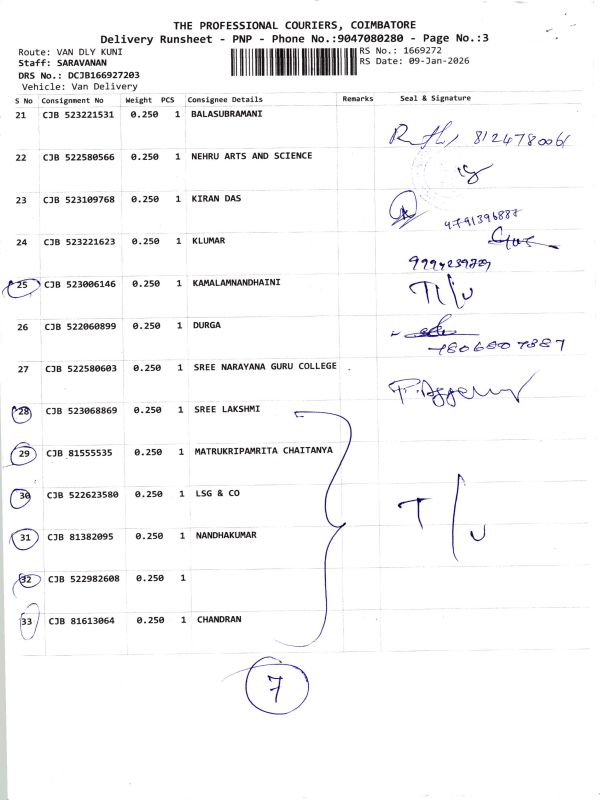 THE PROFESSIONAL COURIERS, COIMBATORE
Delivery Runsheet - PNP - Phone No.:9047080280 - Page No.:3
Route: VAN DLY KUNI RS No.: 1669272
Staff: SARAVANAN RS Date: 09-Jan-2026
DRS No.: DCJB166927203
Vehicle: Van Delivery
S No Consignment No Weight PCS Consignee Details Remarks Seal & Signature
21 CJB 523221531 0.250 1 BALASUBRAMANI
22 CJB 522580566 0.250 1 NEHRU ARTS AND SCIENCE
23 CJB 523109768 0.250 1 KIRAN DAS
24 CJB 523221623 0.250 1 KLUMAR
25 CJB 523006146 0.250 1 KAMALAMNANDHAINI T/U
26 CJB 522060899 0.250 1 DURGA
27 CJB 522580603 0.250 1 SREE NARAYANA GURU COLLEGE
28 CJB 523068869 0.250 1 SREE LAKSHMI
29 CJB 81555535 0.250 1 MATRUKRIPAMRITA CHAITANYA
30 CJB 522623580 0.250 1 LSG & CO T/U
31 CJB 81382095 0.250 1 NANDHAKUMAR
32 CJB 522982608 0.250 1
33 CJB 81613064 0.250 1 CHANDRAN
7